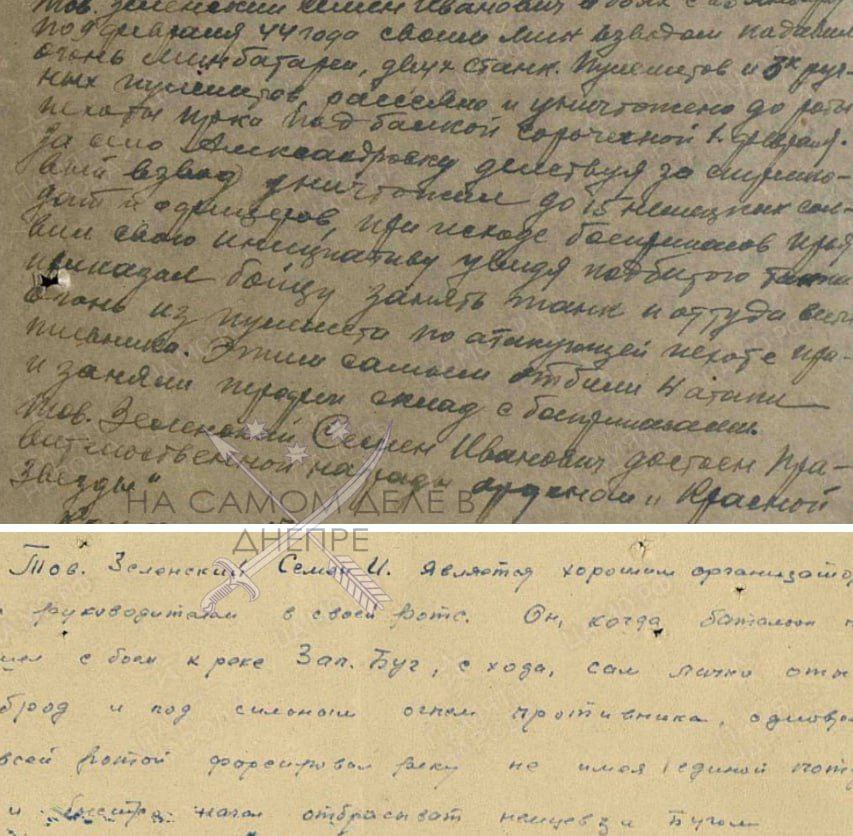 Тов. Зеленский Семен Иванович в боях с
по февраля 44 года своим мин взводом подавил
огонь минбатареи, двух станк. пулеметов и 3х руч-
ных пулеметов, рассеяно и уничтожено до роты
пехоты пр-ка под балкой Сорочечной 1. февраля.
за село Александровку действуя за стрелко-
вый взвод уничтожил до 15 немецких сол-
дат и офицеров, при исходе боеприпасов проя
вил свою инициативу увидя подбитого танка
приказал бойцу занять танк и оттуда вели
огонь из пулемета по атакующей пехоте про-
тивника. Этим самым отбили 4 атаки
и заняли трофеи склад с боеприпасами.
Тов. Зеленский Семен Иванович достоен Пра-
вительственной награды орденом "Красной
Звезды"
НА САМОМ ДЕЛЕ В
ДНЕПРЕ
Тов. Зеленский Семен И. является хорошим организатор
руководителем в своей роте. Он, когда батальон
шел с боем к реке Зап. Буг, с хода, сам лично оты
брод и под сильным огнем противника, одновре
всей ротой форсировал реку не имея единой поте
и быстро начал отбрасыват немцев за Бугом